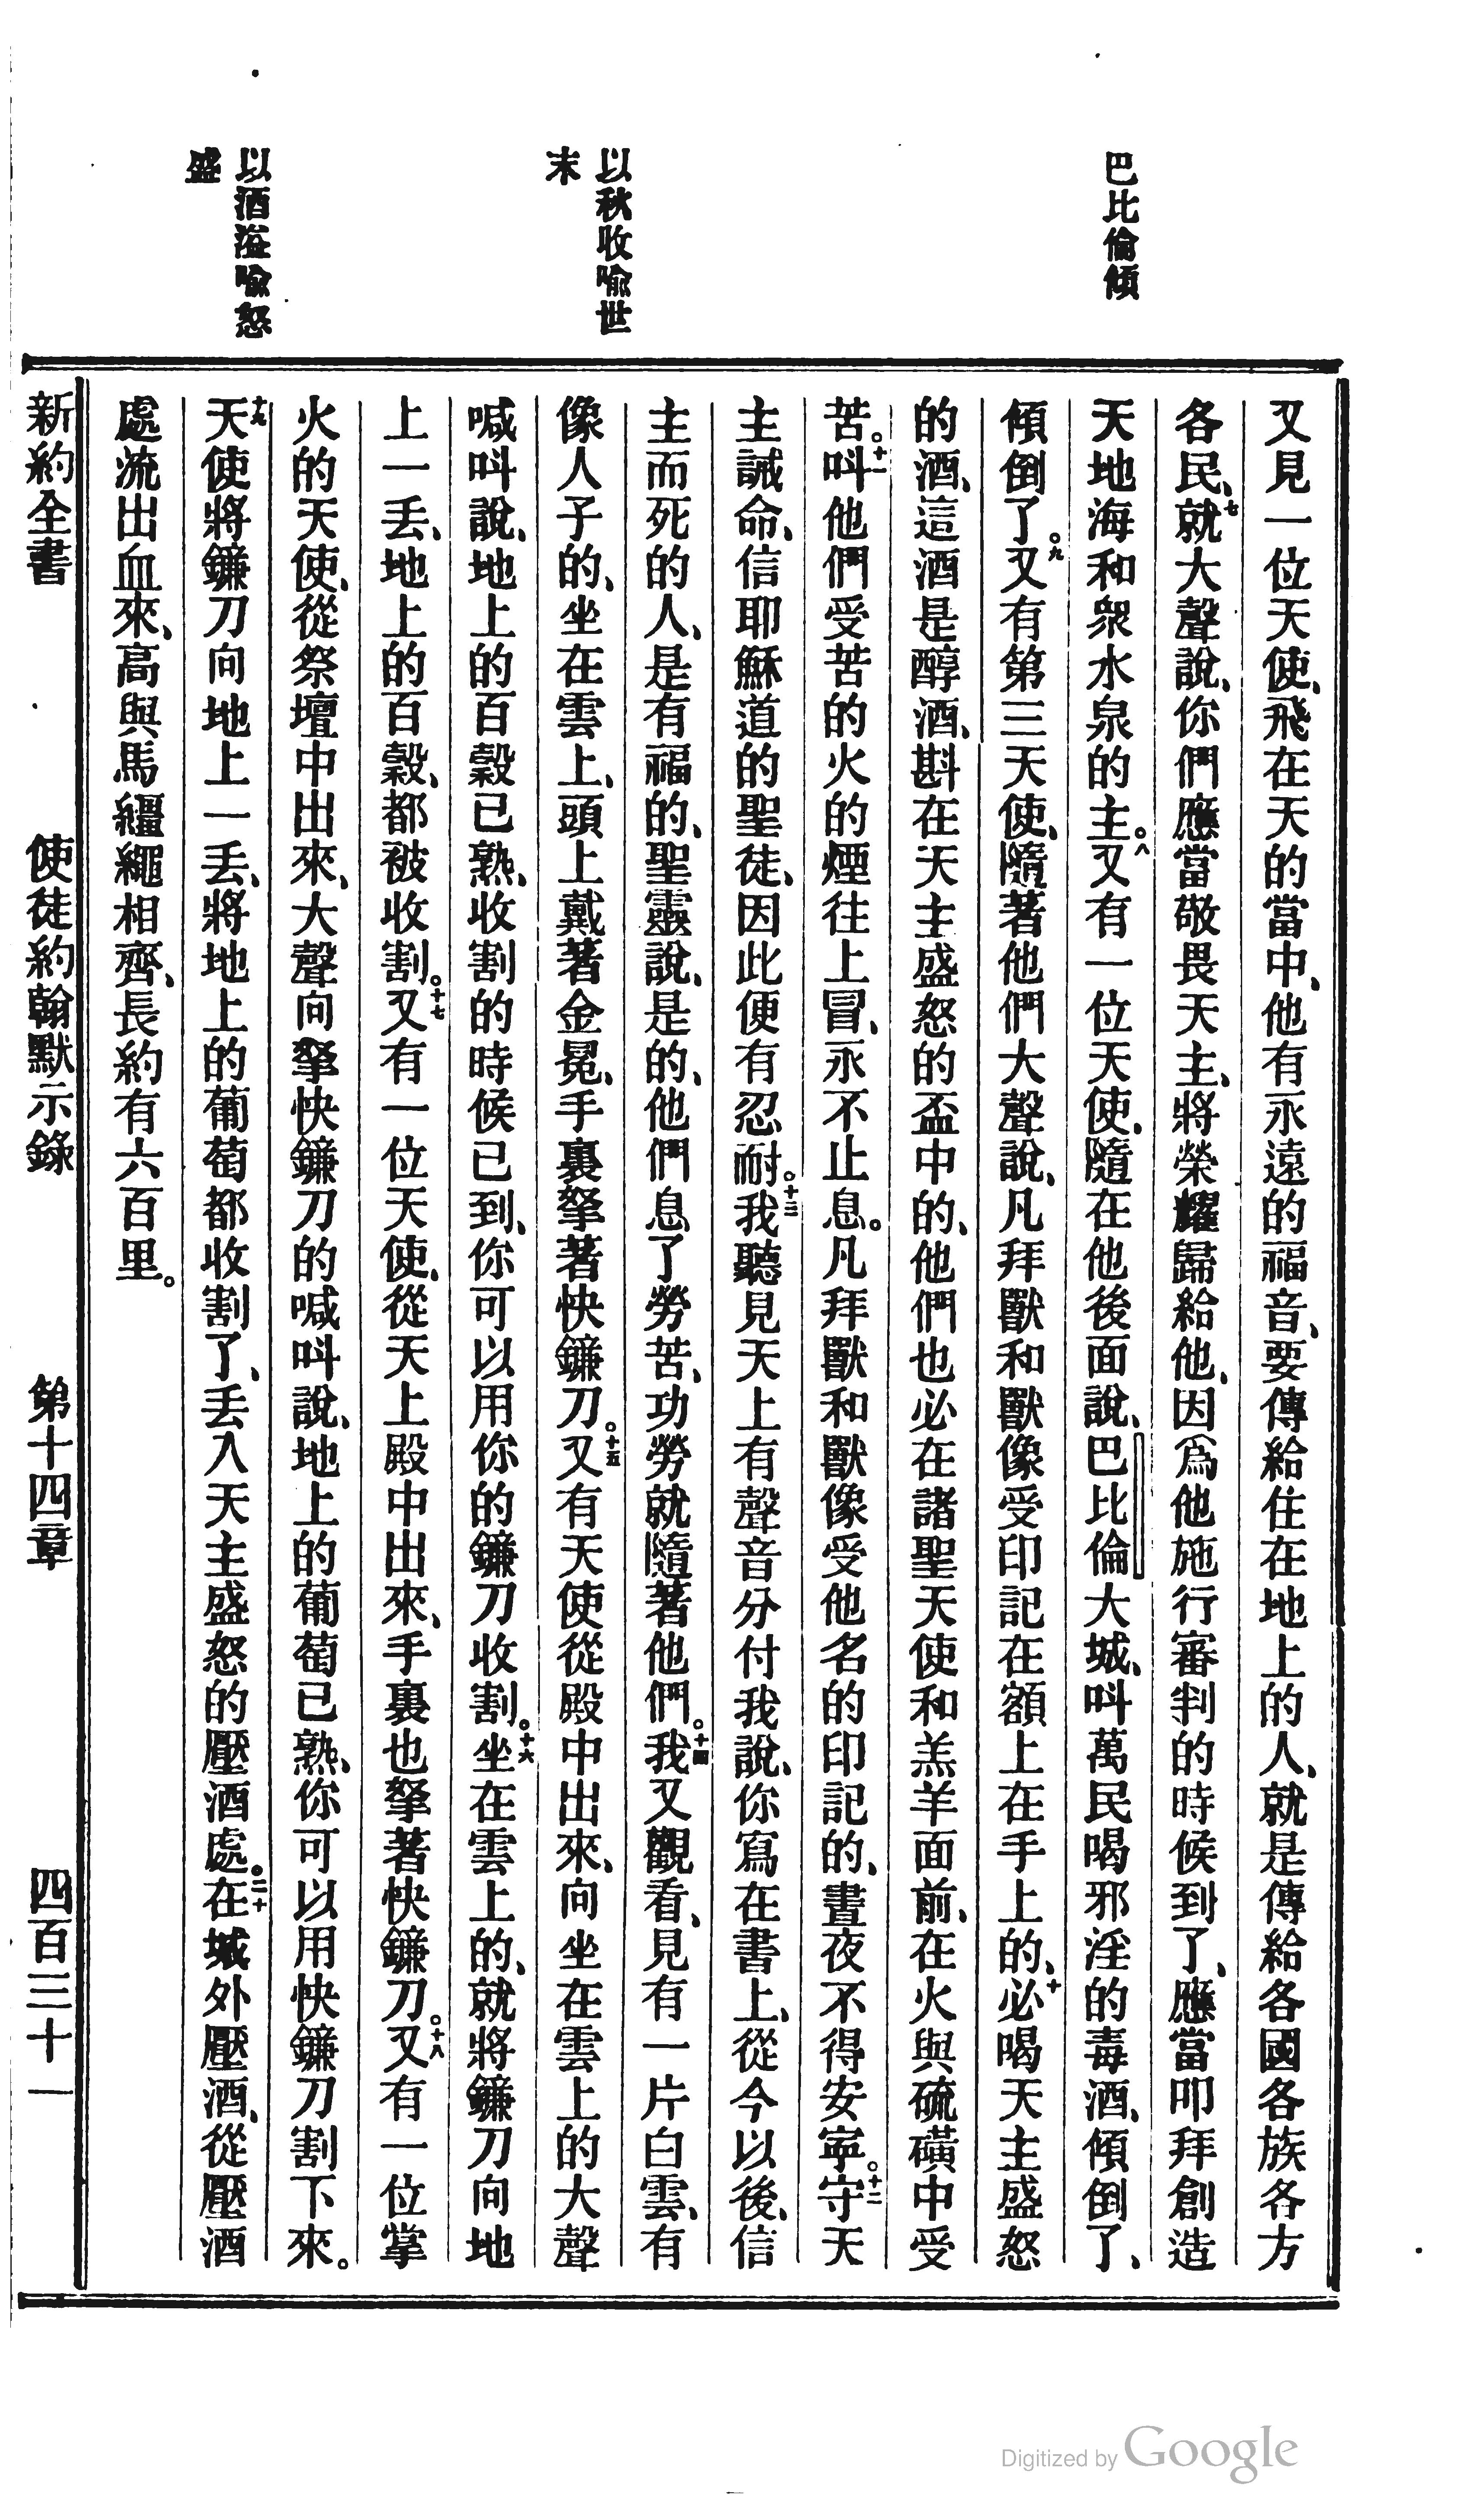 巴比倫傾
以秋收喻世
末
以酒滏喻怒
盛
又見一位天使、飛在天的當中、他有永遠的福音、要傳給住在地上的人、就是傳給各國各族各方
各民、七就大聲說、你們應當敬畏天主、將榮耀歸給他、因爲他施行審判的時候到了、應當叩拜創造
天地海和衆水泉的主。八又有一位天使、隨在他後面說、巴比倫大城、呌萬民喝邪淫的毒酒、傾倒了、
傾倒了。九又有第三天使、隨著他們大聲說、凡拜獸和獸像受印記在額上在手上的、十必喝天主盛怒
的酒、這酒是醇酒、斟在天主盛怒的盃中的、他們也必在諸聖天使和羔羊面前、在火與硫磺中受
苦。十一呌他們受苦的火的煙往上冒、永不止息。凡拜獸和獸像受他名的印記的、晝夜不得安寧。十二守天
主誡命、信耶穌道的聖徒、因此便有忍耐。十三我聽見天上有聲音分付我說、你寫在書上、從今以後、信
主而死的人、是有福的、聖靈說、是的、他們息了勞苦、功勞就隨著他們。十四我又觀看、見有一片白雲、有
像人子的、坐在雲上、頭上戴著金冕、手裏拏著快鐮刀。十五又有天使從殿中出來、向坐在雲上的大聲
喊呌說、地上的百穀已熟、收割的時候已到、你可以用你的鐮刀收割。十六坐在雲上的、就將鐮刀向地
上一丢、地上的百穀、都被收割。十七又有一位天使、從天上殿中出來、手裏也拏著快鐮刀。十八又有一位掌
火的天使、從祭壇中出來、大聲向拏快鐮刀的喊呌說、地上的葡萄已熟、你可以用快鐮刀割下來。
十九天使將鐮刀向地上一丢、將地上的葡萄都收割了、丢入天主盛怒的壓酒處。二十在城外壓酒、從壓酒
處流出血來、高與馬繮繩相齊、長約有六百里。
新約全書　使徒約翰默示錄　第十四章　四百三十一
Digitized by Google